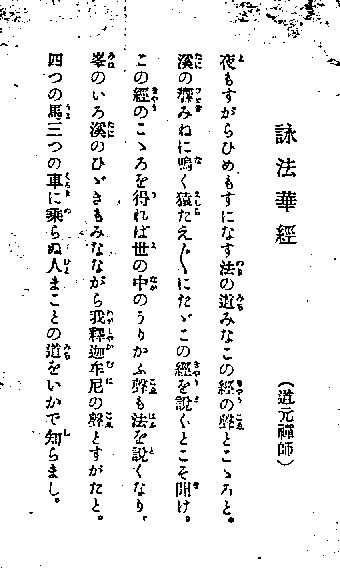 詠法華經
(道元禪師)
夜もすがらひめもすになす法の道みなこの經の聲とこゝろと。
溪の響みねに鳴く猿たえ〲にたゞこの經を說くとこそ聞け。
この經のこゝろを得れば世の中のうりかふ聲も法を說くなり。
峯のいろ溪のひゞきもみなながら我釋迦牟尼の聲とすがたと。
四つの馬三つの車に乘らぬ人まことの道をいかで知らまし。